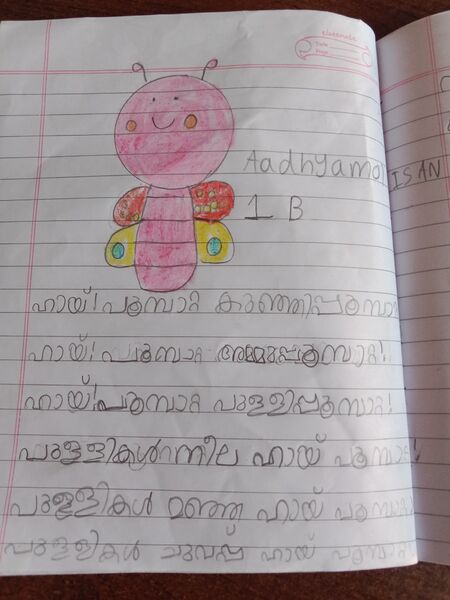 classmate
Date
Page
Aadhyamol IS AN
1 B
ഹായ്! പൂമ്പാറ്റ കുഞ്ഞിപ്പൂമ്പാ
ഹായ്! പൂമ്പാറ്റ അമ്മുപ്പൂമ്പാറ്റ!
ഹായ്! പൂമ്പാറ്റ പുള്ളിപ്പൂമ്പാറ്റ!
പുള്ളികൾ നീല ഹായ് പൂമ്പാറ്റ!
പുള്ളികൾ മഞ്ഞ ഹായ് പൂമ്പാറ്റ
പുള്ളികൾ ചുവപ്പ് ഹായ് പൂമ്പാറ്റ